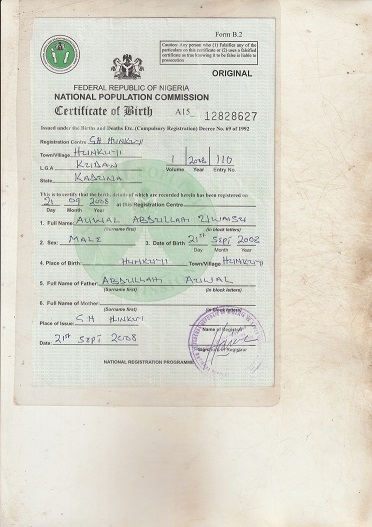 Form B.2
Caution: Any person who (1) Falsifies any of the
particulars on this certificate or (2) uses a falsified
certificate as true knowing it to be false is liable to
prosecution
ORIGINAL
FEDERAL REPUBLIC OF NIGERIA
NATIONAL POPULATION COMMISSION
Certificate of Birth A15 12828627
Issued under the Births and Deaths Etc. (Compulsory Registration) Decree No. 69 of 1992
Registration Centre GH HUNKUYI
Town/Village HUNKUYI
L.G.A KUDAN 1 2008 110
Volume Year Entry No.
State KADUNA
This is to certify that the birth, details of which are recorded herein has been registered on
21 09 2008 at this Registration Centre
Day Month Year
1. Full Name: AUWAL ABDULLAHI
(Surname first) (in block letters)
2. Sex: MALE 3. Date of Birth 21st SEPT 2008
Day Month Year
4. Place of Birth: HUNKUYI Town/Village HUNKUYI
5. Full Name of Father: ABDULLAHI AUWAL
(Surname first) (in block letters)
6. Full Name of Mother
(Surname first) (in block letters)
Place of Issue: GH HUNKUYI
Name of Registrar
Date: 21st SEPT 2008
Signature of Registrar
NATIONAL REGISTRATION PROGRAMME